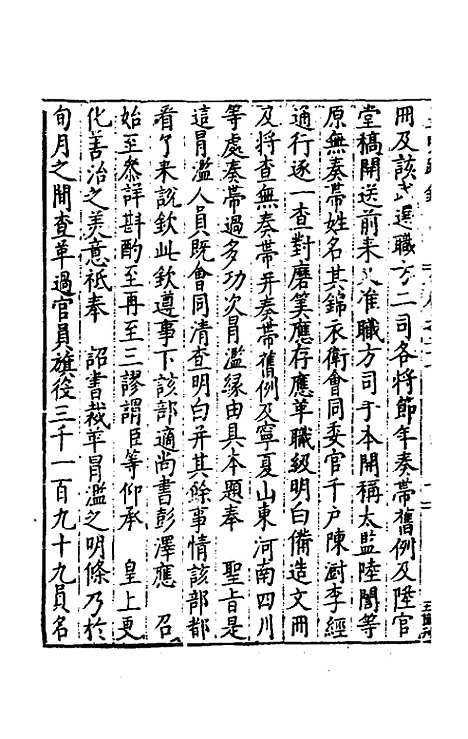 冊及該武選職方二司各將節年奏帶舊例及陞官
堂稿開送前來又准職方司手本開稱太監陸誾等
原無奏帶姓名其錦衣衛會同委官千戶陳厨李經
通行逐一查對磨筭應存應革職級明白備造文冊
及將查無奏帶并奏帶舊例及寧夏山東河南四川
等處奏帶過多功次冐濫緣由具本題奉 聖旨是
這冐濫人員既會同清查明白并其餘事情該部都
看了來說欽此欽遵事下該部適尚書彭澤應 召
始至叅詳斟酌至再至三謬謂臣等仰承 皇上更
化善治之美意祗奉 詔書裁革冐濫之明條乃於
旬月之間查革過官員旗役三千一百九十九員名